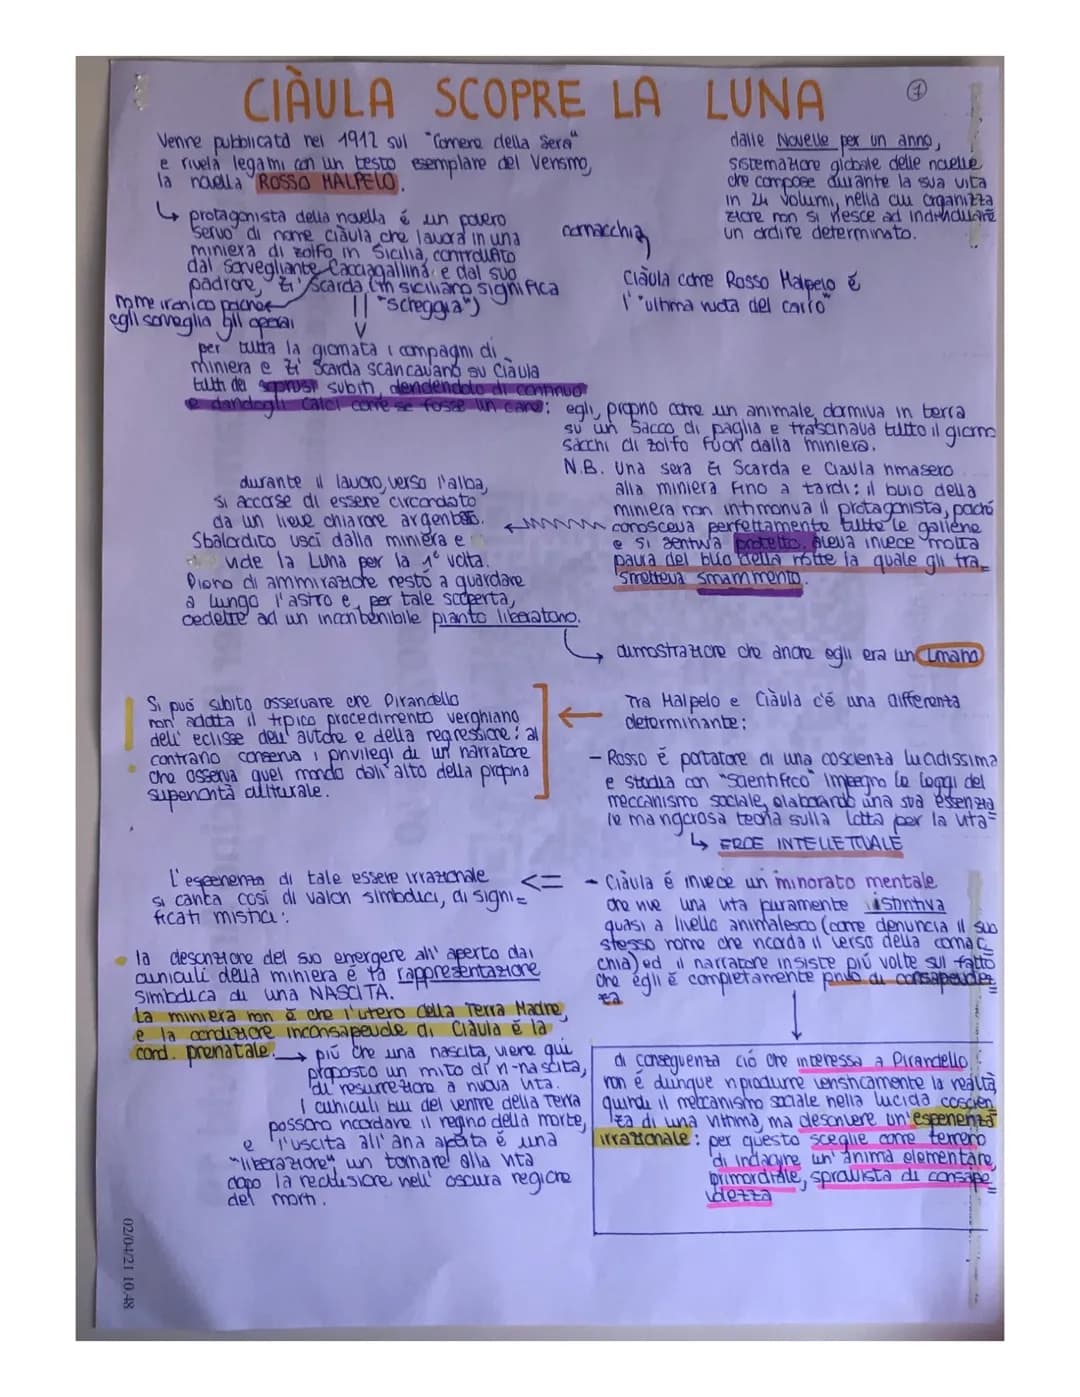 CIÀULA SCOPRE LA LUNA
1
Venne pubblicata nel 1912 sul "Corriere della Sera"
e rivela legami con un testo esemplare del Verismo,
la novella ROSSO MALPELO.
dalle Novelle per un anno,
sistemazione globale delle novelle
che compose durante la sua vita
in 24 volumi, nella cui organizza
zione non si riesce ad individuare
un ordine determinato.
↳ protagonista della novella é un povero
servo di nome Ciàula che lavora in una
miniera di zolfo in Sicilia, controllato
dal sorvegliante Cacciagallina e dal suo
padrone, Zi' Scarda (in siciliano significa
"scheggia")
cornacchia
Ciàula come Rosso Malpelo é
l'"ultima ruota del carro"
nome ironico poiché
egli sorveglia gli operai
per tutta la giornata i compagni di
miniera e Zi' Scarda scaricavano su Ciàula
tutti dei soprusi subiti, deridendolo di continuo
e dandogli calci come se fosse un cane: egli, proprio come un animale, dormiva in terra
su un sacco di paglia e trascinava tutto il giorno
sacchi di zolfo fuori dalla miniera.
N.B. Una sera Zi Scarda e Ciaula rimasero
alla miniera fino a tardi: il buio della
miniera non intimoriva il protagonista, poiché
conosceva perfettamente tutte le gallerie
e si sentiva protetto. Aveva invece molta
paura del buio della notte la quale gli tra=
smetteva smarrimento.
durante il lavoro, verso l'alba,
si accorse di essere circondato
da un lieve chiarore argenteo.
Sbalordito uscì dalla miniera e
vide la Luna per la 1° volta.
Pieno di ammirazione restò a guardare
a lungo l'astro e, per tale scoperta,
cedette ad un incontenibile pianto liberatorio.
↳ dimostrazione che anche egli era un umano
Si puó subito osservare che Pirandello
non adotta il tipico procedimento verghiano
dell'eclisse dell'autore e della regressione: al
contrario conserva i privilegi di un narratore
che osserva quel mondo dall'alto della propria
superiorità culturale.
Tra Malpelo e Ciàula c'é una differenza
determinante:
- Rosso é portatore di una coscienza lucidissima
e studia con "scientifico" impegno le leggi del
meccanismo sociale, elaborando una sua essenzia
le ma rigorosa teoria sulla lotta per la vita=
↳ EROE INTELLETTUALE
- Ciàula é invece un minorato mentale
che vive una vita puramente istintiva
quasi a livello animalesco (come denuncia il suo
stesso nome che ricorda il verso della cornac
chia) ed il narratore insiste più volte sul fatto
che egli é completamente privo di consapevolez
za
L'esperienza di tale essere irrazionale <=
si carica così di valori simbolici, di signi=
ficati mistici:
• la descrizione del suo emergere all'aperto dai
cunicoli della miniera é la rappresentazione
simbolica di una NASCITA.
La miniera non é che l'utero della Terra Madre,
e la condizione inconsapevole di Ciàula é la
cond. prenatale. → più che una nascita, viene qui
proposto un mito di ri-nascita,
di resurrezione a nuova vita.
I cunicoli bui del ventre della Terra
possono ricordare il regno della morte,
e l'uscita all'aria aperta é una
"liberazione", un tornare alla vita
dopo la reclusione nell'oscura regione
dei morti.
di conseguenza ciò che interessa a Pirandello
non é dunque riprodurre veristicamente la realtà
quindi il meccanismo sociale nella lucida coscien
za di una vittima, ma descrivere un'esperienza
irrazionale: per questo sceglie come terreno
di indagine un'anima elementare,
primordiale, sprovvista di consape
volezza
02/04/21 10:48